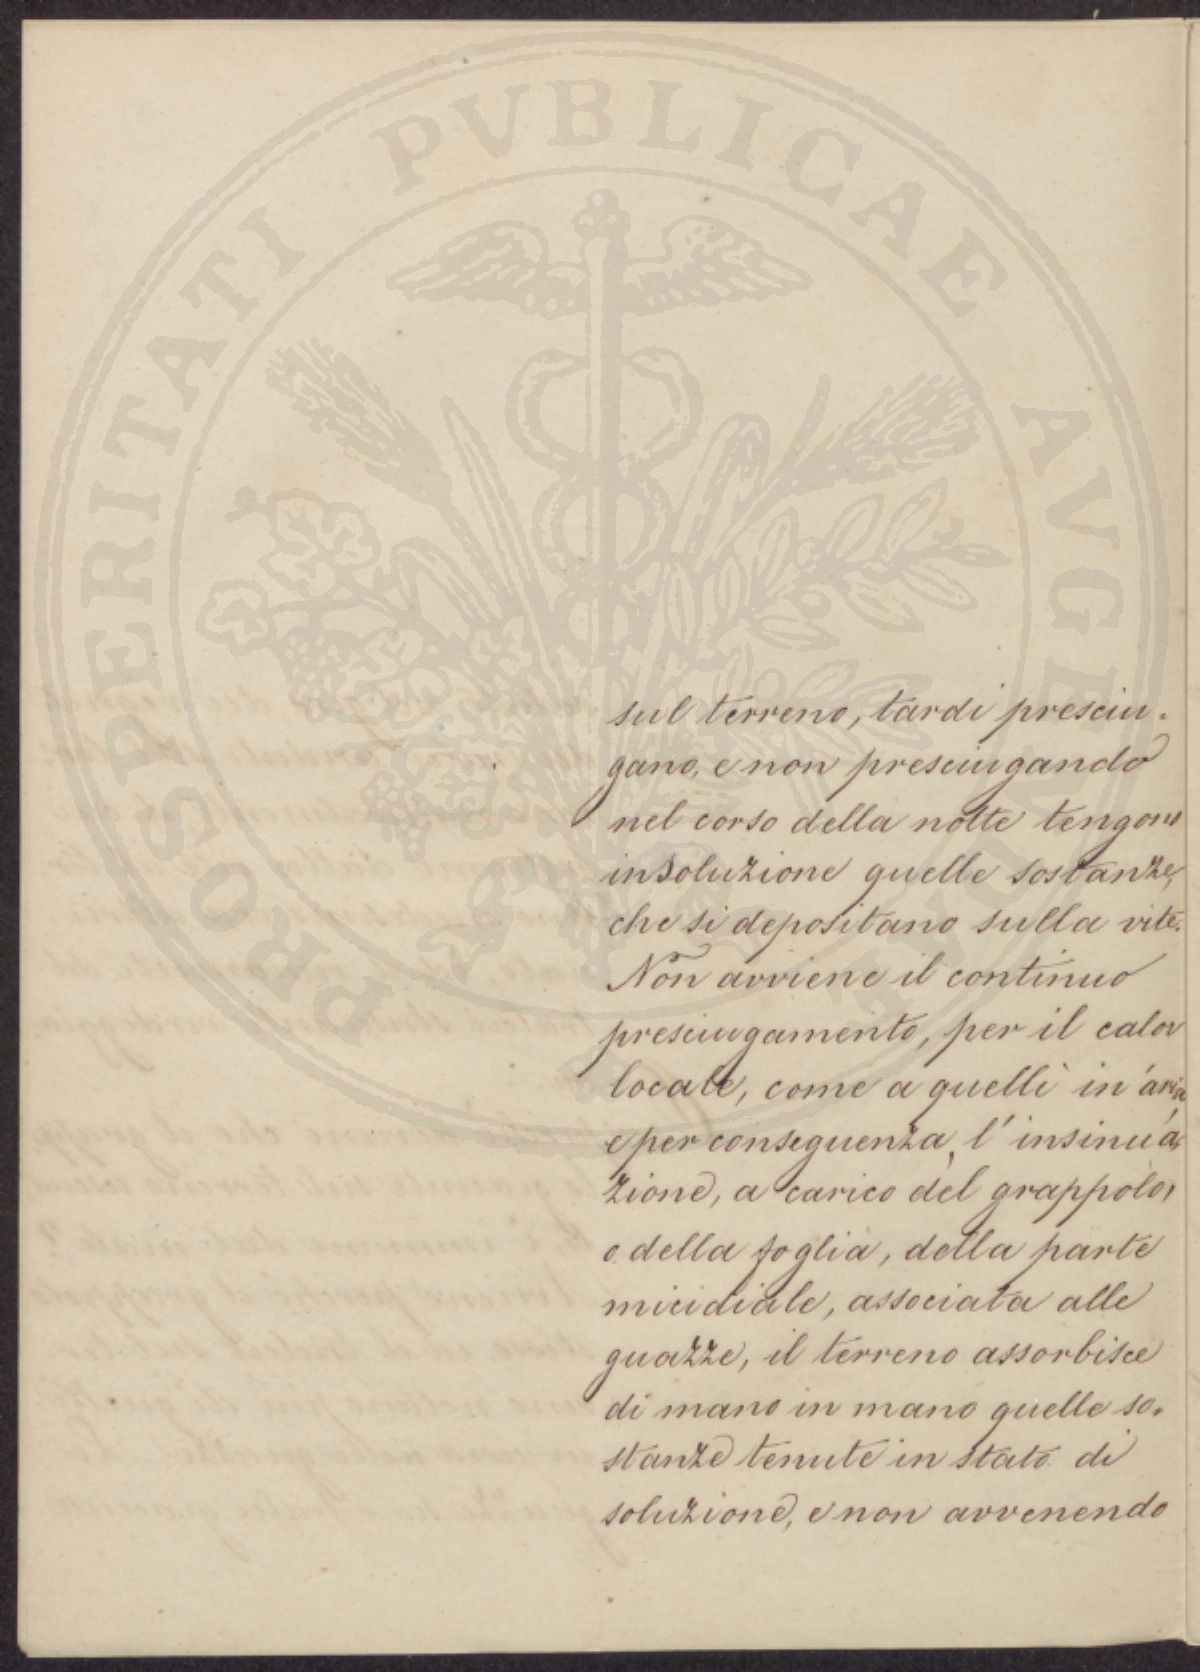 PROSPERITATI PVBLICAE AVGENDAE
sul terreno, tardi presciu-
gano, e non presciugando
nel corso della notte tengono
in soluzione quelle sostanze,
che si depositano sulla vite.
Non avviene il continuo
presciugamento, per il calor
locale, come a quelli in aria
e per conseguenza, l'insinua-
zione, a carico del grappolo,
o della foglia, della parte
micidiale, associata alle
guazze, il terreno assorbisce
di mano in mano quelle so-
stanze tenute in stato di
soluzione, e non avvenendo